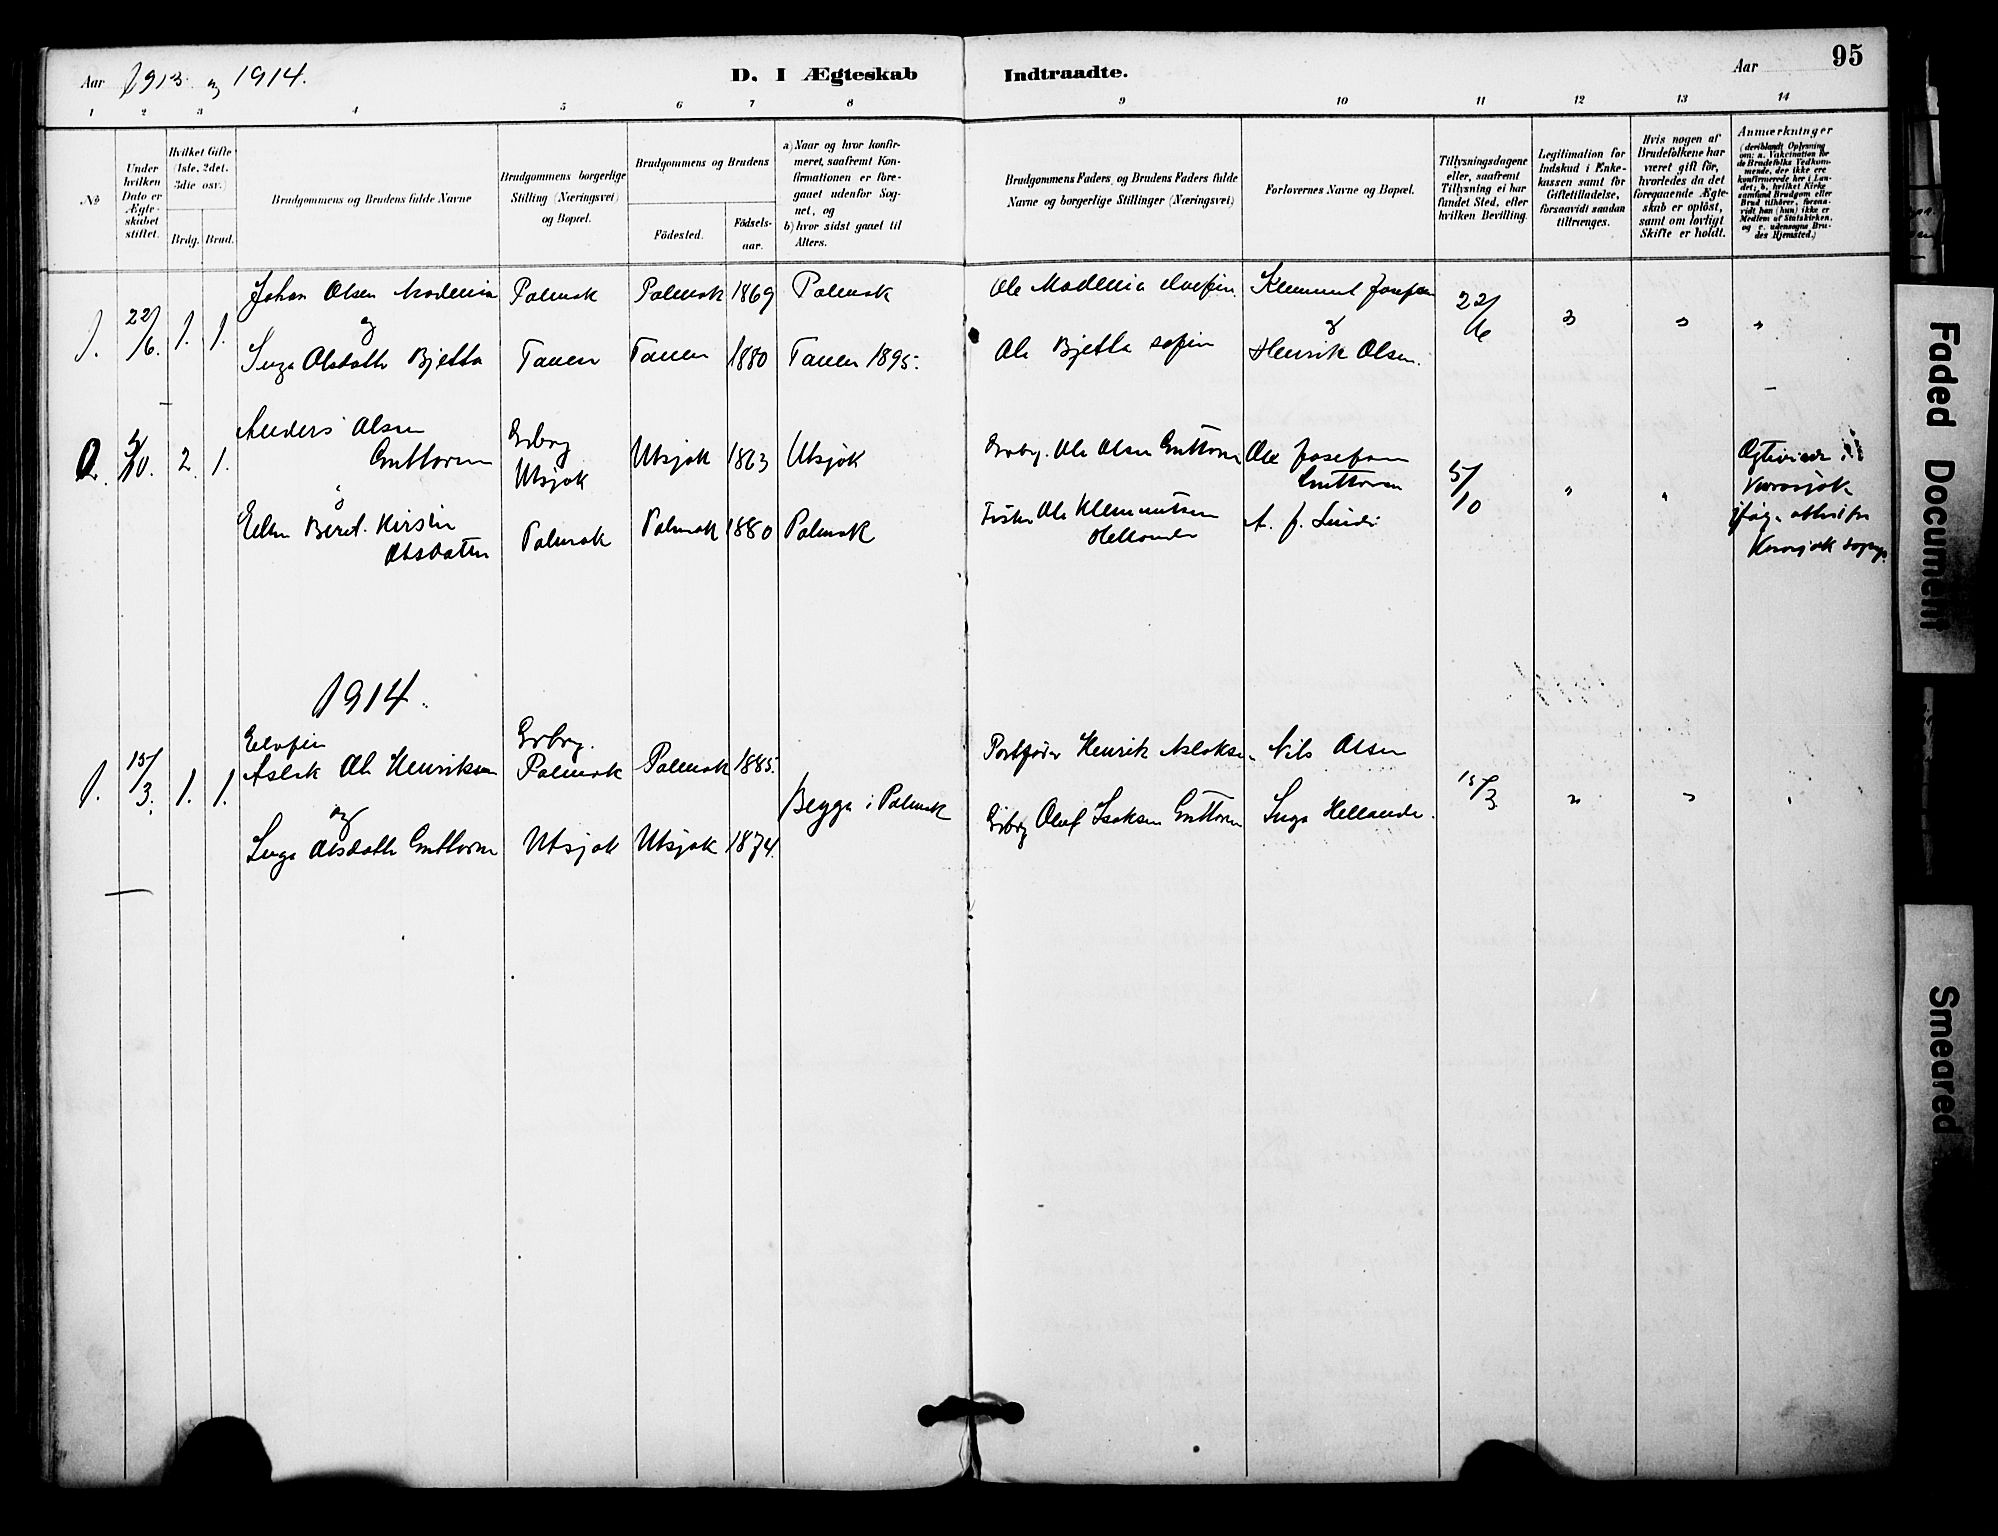 Aar 1913 og 1914.
D. I Ægteskab Indtraadte.
Aar 95
1 2 3 4 5 6 7 8 9 10 11 12 13 14
No
Under hvilken Dato er Ægteskabet stiftet.
Hvilket Gifte (1ste, 2det, 3die osv.)
Brdg. Brud.
Brudgommens og Brudens fulde Navne
Brudgommens borgerlige Stilling (Næringsvei) og Bopæl.
Brudgommens og Brudens
Födested.
Födselsaar.
a) Naar og hvor konfirmeret, saafremt Konfirmationen er foregaaet udenfor Sognet, og
b) hvor sidst gaaet til Alters.
Brudgommens Faders og Brudens Faders fulde Navne og borgerlige Stillinger (Næringsvei)
Forlovernes Navne og Bopæl.
Tillysningsdagene eller, saafremt Tillysning ei har fundet Sted, efter hvilken Bevilling.
Legitimation for Indskud i Enkekassen samt for Giftetilladelse, forsaavidt saadan tiltrænges.
Hvis nogen af Brudefolkene har været gift för, hvorledes da det foregaaende Ægteskab er oplöst, samt om lovligt Skifte er holdt.
Anmærkninger
(deriblandt Oplysning om: a. Vakcination for de Brudefolks Vedkommende, der ikke ere konfirmerede her i Landet, b. hvilket Kirkesamfund Brudgom eller Brud tilhörer, forsaavidt han (hun) ikke er Medlem af Statskirken, og c. udensogns Brudes Hjemsted.)
1. 22/6. 1. 1. Johan Olsen Madenia Polmak Polmak 1869 Polmak Ole Madenia Klemmet Josefsen 22/6 " " "
og
Inga Olsdatter Bjetta Tanen Tanen 1880 Tanen 1895. Ole Bjetta Henrik Olsen.
2. 5/10. 2. 1. Anders Olsen Guttorm Grbrg Utsjok Utsjok 1863 Utsjok Grbrg. Ole Olsen Guttorm Ole Josefsen Guttorm 5/10 " "
Karasjok
Ellen Berit Kirstin Olsdatter Polmak Polmak 1880 Polmak Fisker Ole Klemmetsen Hellander A. J. Lindi
Karasjok
1914.
1. 15/3. 1. 1. Elvefin Aslak Ole Henriksen Grbrg. Polmak Polmak 1885. Postfører Henrik Aslaksen Nils Olsen
Begge i Polmak 15/3 " " "
og
Inga Olsdatter Guttorm Utsjok Utsjok 1874. Grbrg Oluf Isaksen Guttorm Inga Hellander.
Faded Document
Smeared